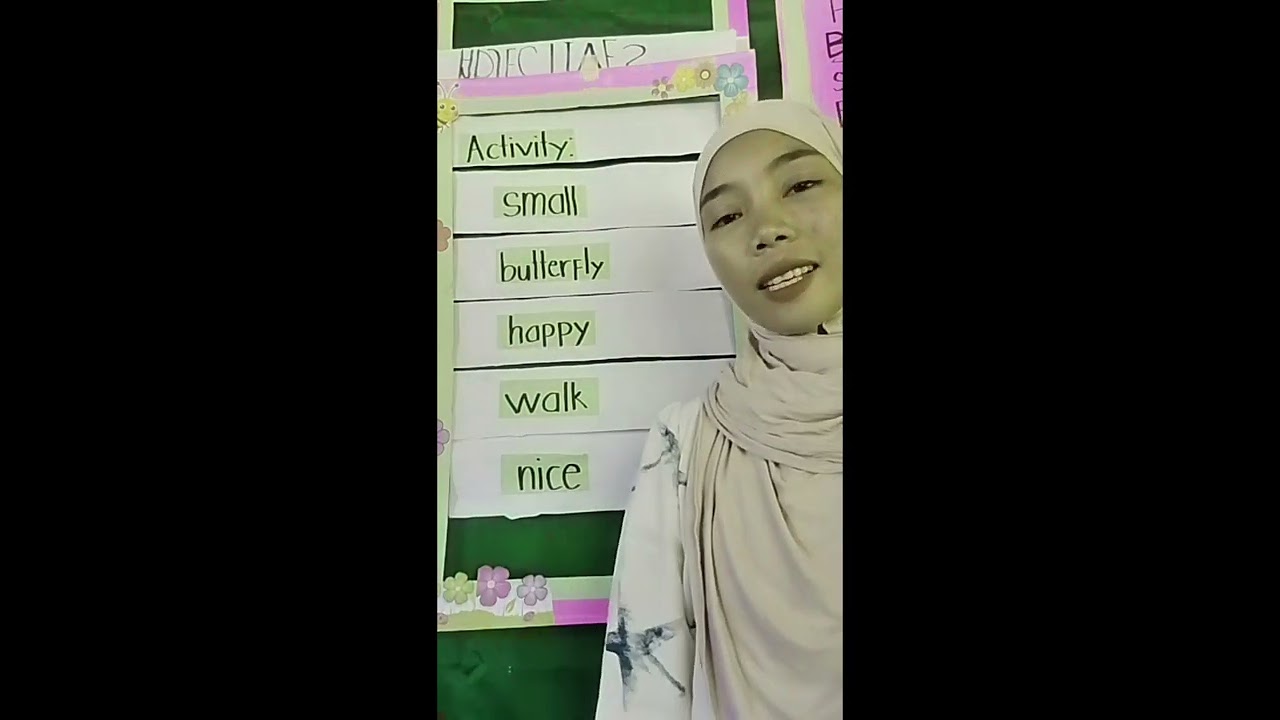 Activity:
small
butterfly
happy
walk
nice